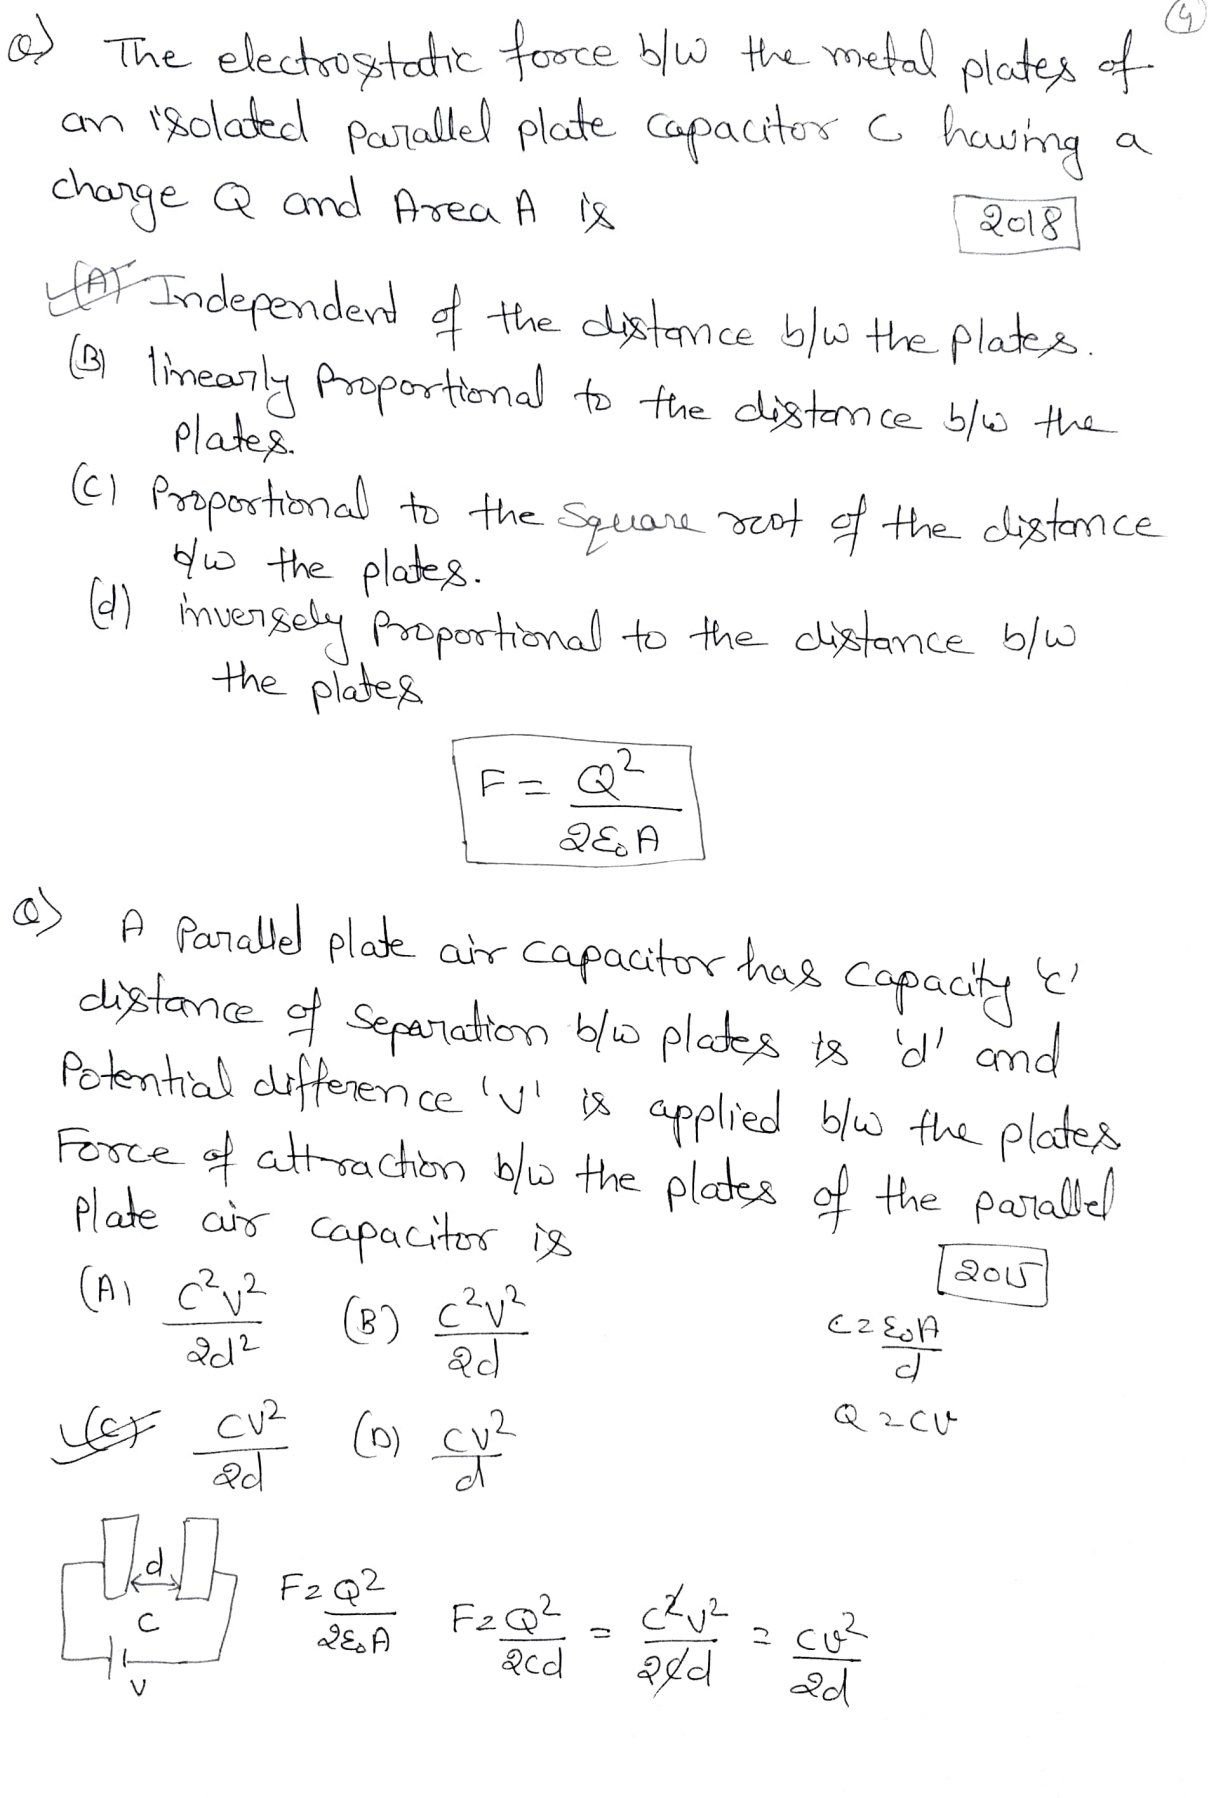 4
Q) The electrostatic force b/w the metal plates of
an isolated parallel plate capacitor C having a
charge Q and Area A is
2018
(A) Independent of the distance b/w the plates.
(B) linearly proportional to the distance b/w the
plates.
(C) Proportional to the square root of the distance
b/w the plates.
(d) inversely proportional to the distance b/w
the plates
F = Q²/2ε₀A
Q) A parallel plate air capacitor has capacity 'c'
distance of separation b/w plates is 'd' and
Potential difference 'v' is applied b/w the plates
Force of attraction b/w the plates of the parallel
plate air capacitor is
2015
(A) C²V²/2d² (B) C²V²/2d
C = ε₀A/d
(C) CV²/2d (D) CV²/d
Q = CV
d
C
V
F = Q²/2ε₀A F = Q²/2cd = C²V²/2cd = CV²/2d